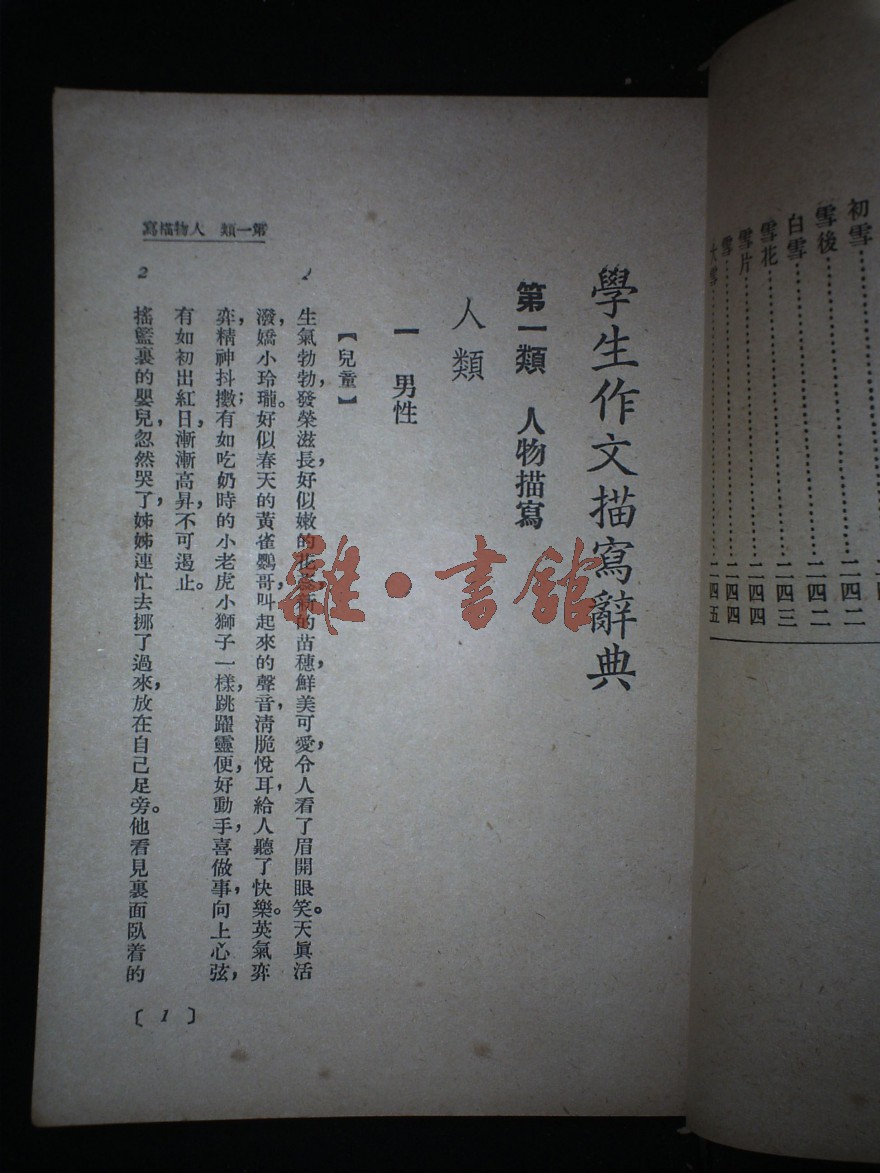 初雪……二
雪後……二四二
白雪……二四二
雪花……二四三
雪片……二四四
雪……二四四
大雪……二四五
學生作文描寫辭典
第一類 人物描寫
人類
一 男性
【兒童】
1 生氣勃勃，發榮滋長，好似嫩的花，新的苗穗，鮮美可愛，令人看了眉開眼笑。天眞活
潑，嬌小玲瓏。好似春天的黃雀鸚哥，叫起來的聲音，淸脆悅耳，給人聽了快樂。英氣弈
弈，精神抖擻；有如吃奶時的小老虎小獅子一樣，跳躍靈便，好動手，喜做事，向上心弦，
有如初出紅日，漸漸高昇，不可遏止。
2 搖籃裏的嬰兒，忽然哭了，姊姊連忙去挪了過來，放在自己足旁。他看見裏面臥着的
第一類 人物描寫
〔1〕
雜·書館